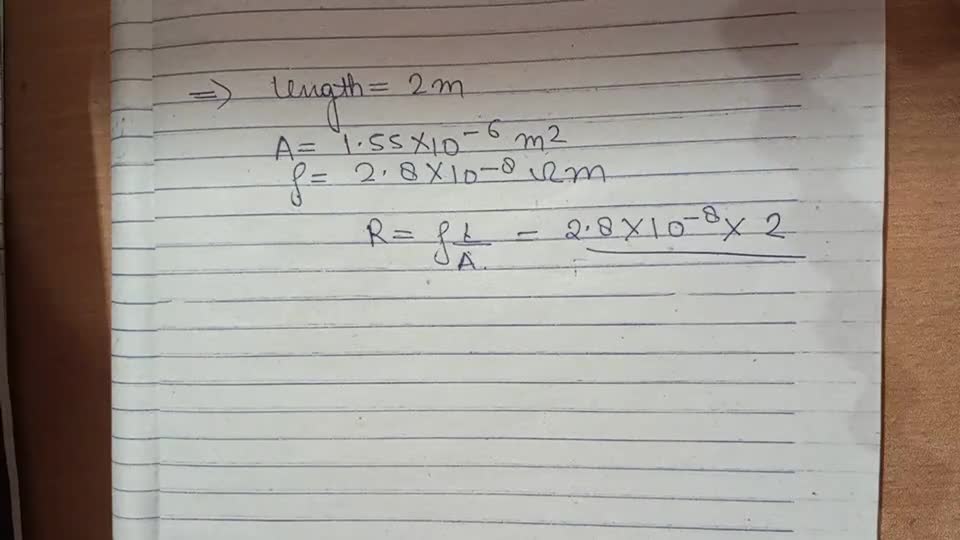 ⇒ length = 2m
A = 1.55×10⁻⁶ m²
ρ = 2.8×10⁻⁸ Ωm
R = ρ l/A = 2.8×10⁻⁸ × 2